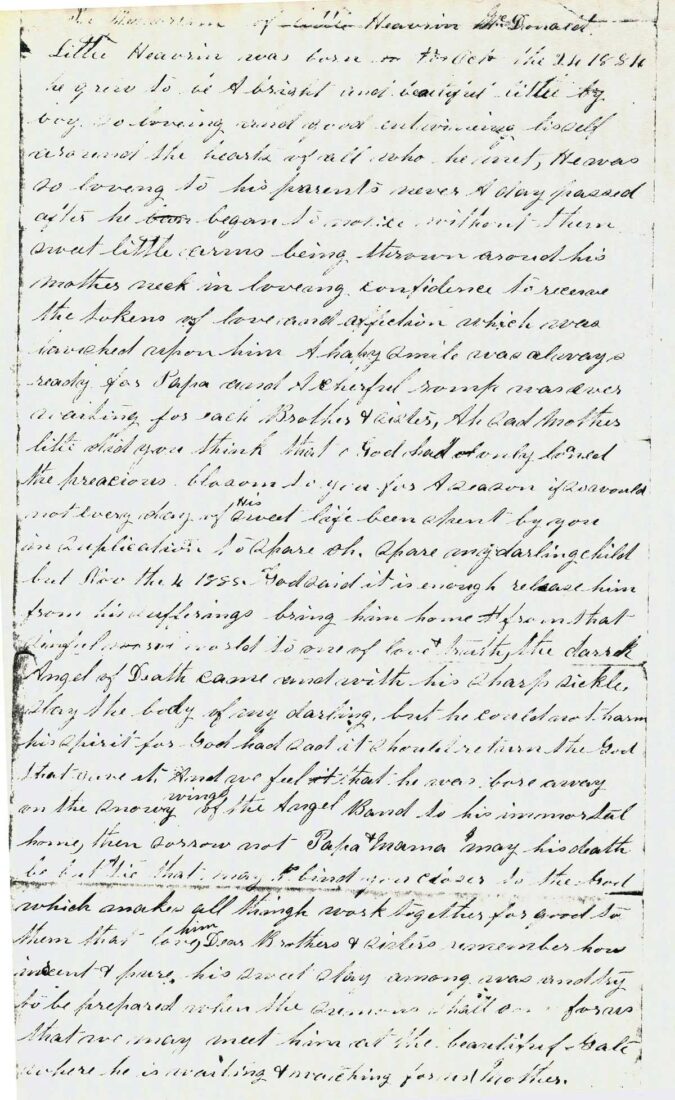 In Memoriam of little Heavrin McDonald.
Little Heavrin was born Oct the 24 1884
he grew to be A bright and beautiful little
boy so loveing and good entwineing hisself
around the hearts of all who he met, He was
so loveing to his parents never A day passed
after he began to notice without them
sweet little arms being thrown around his
mother neck in loveing confidence to receive
the tokens of love and affection which was
laveshed upon him A happy smile was always
ready for Papa and A cherful romp was ever
waiting for each Brother & sister, Ah sad Mother
little did you think that God had only loaned
the preacious blosom to you for A season if so would
not every day of His sweet life been spent by you
in suplication to spare oh spare my darling child
but Nov the 4 1888 God said it is enough release him
from his sufferings bring him home from that
sinful world to one of love & truth, the darrk
Angel of Death came and with his sharp sickle
slay the body of my darling, but he could not harm
his spirit for God had sad it should return the God
that gave it And we feel that he was bore away
on the snowy wings of the Angel Band to his immortal
home, then sorrow not Papa & mama may his death
be but tie that may bind you closer to the God
which makes all things work together for good to
them that love him Dear Brothers & sisters remember how
& pure his sweet stay among was and try
to be prepared when the sumons shall for us
that we may meet him at the beautiful Gate
where he is waiting & watching for us Mother.